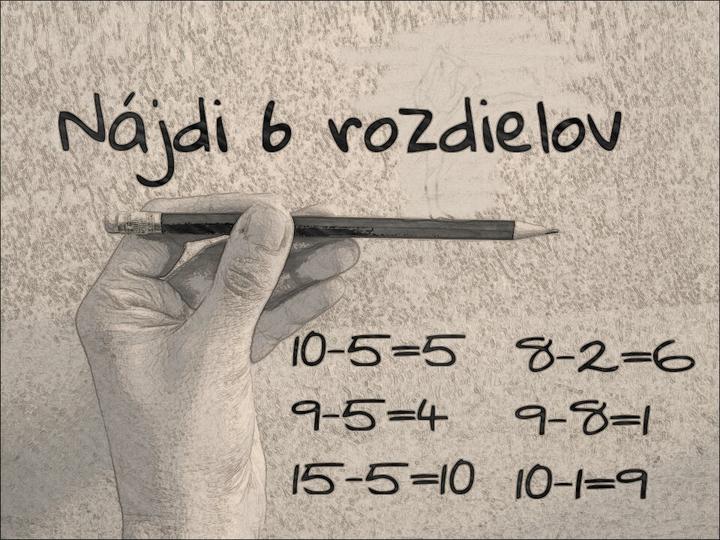 Nájdi 6 rozdielov
10-5=5 8-2=6
9-5=4 9-8=1
15-5=10 10-1=9